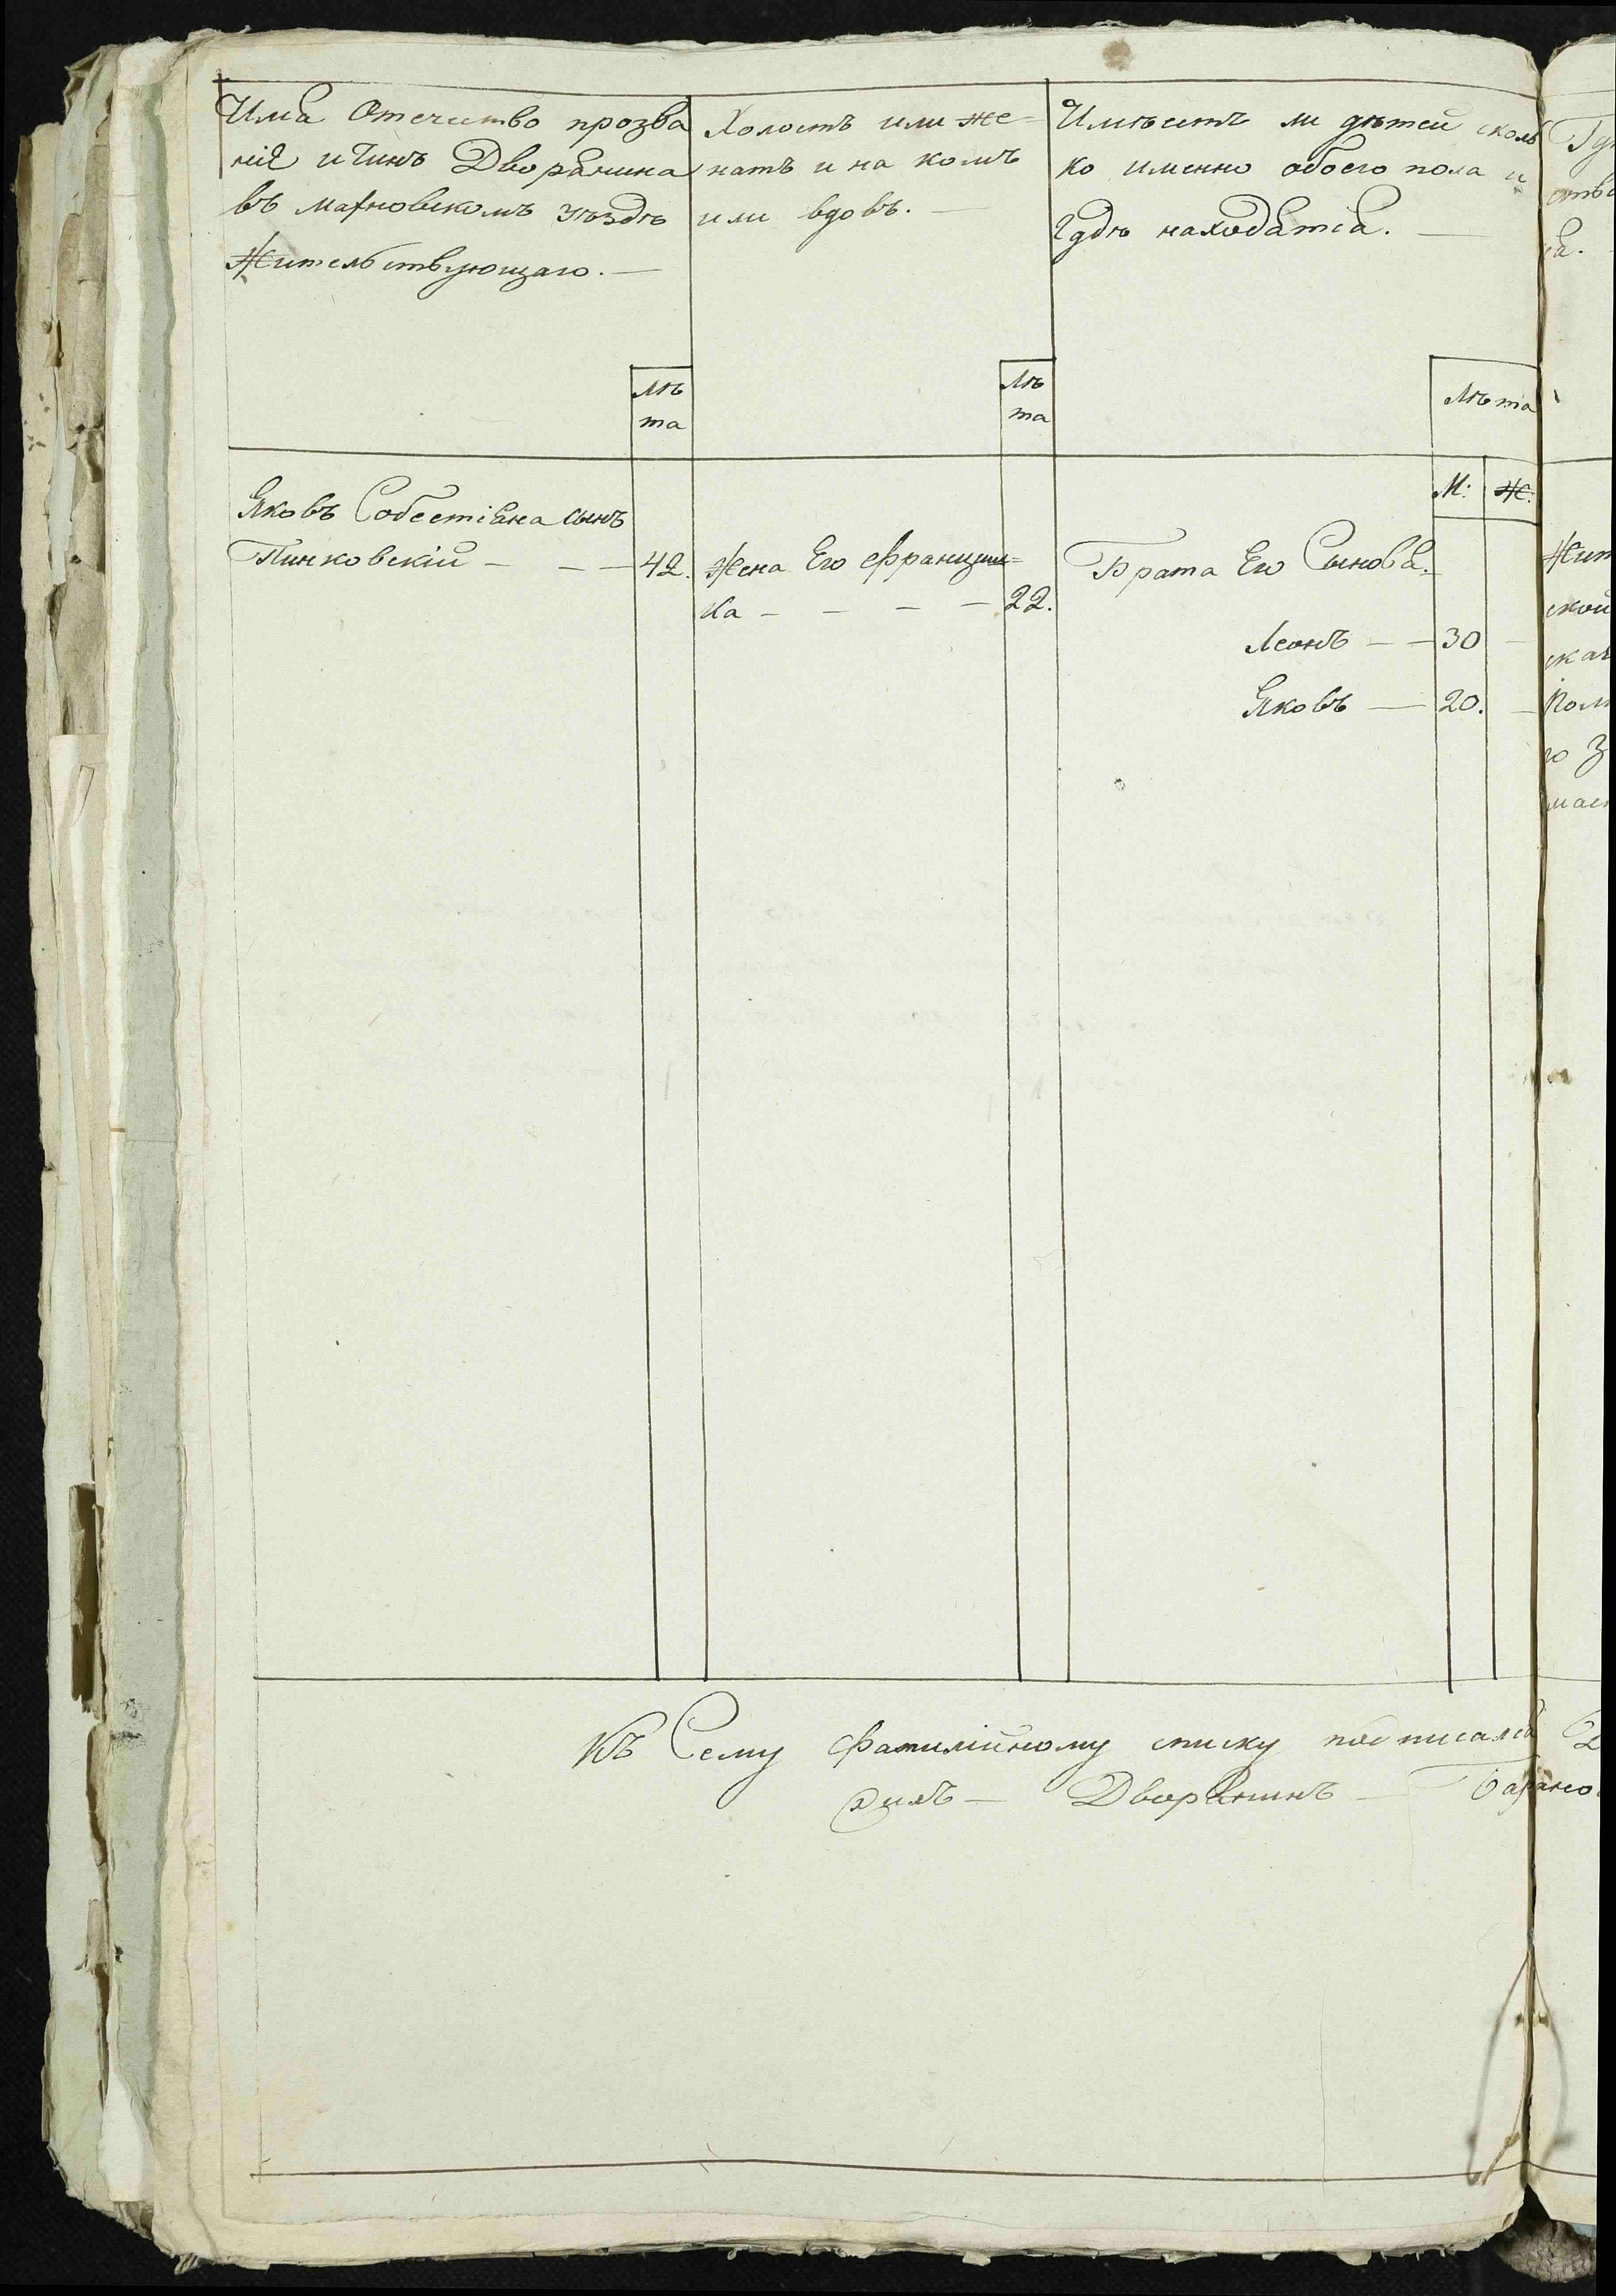 Имя Отечество прозва
нiе и Чинъ Дворянина
въ махновскомъ уѣздѣ
Жительствующаго. —
Лѣ
та
Холостъ или же=
натъ и на комъ
или вдовъ. —
Лѣ
та
Имѣетъ ли дѣтей сколь
ко именно обоего пола и
гдѣ находятся. —
Лѣта
М: Ж:
Яковъ Собестiяна сынъ
Пинковскiй — — — 42.
Жена Его Франциш=
ка — — — — 22.
Брата Его Сыновя.
Леонъ — — 30 —
Яковъ — 20. —
Къ Сему фамилiйному списку подписался
Дворянинъ —